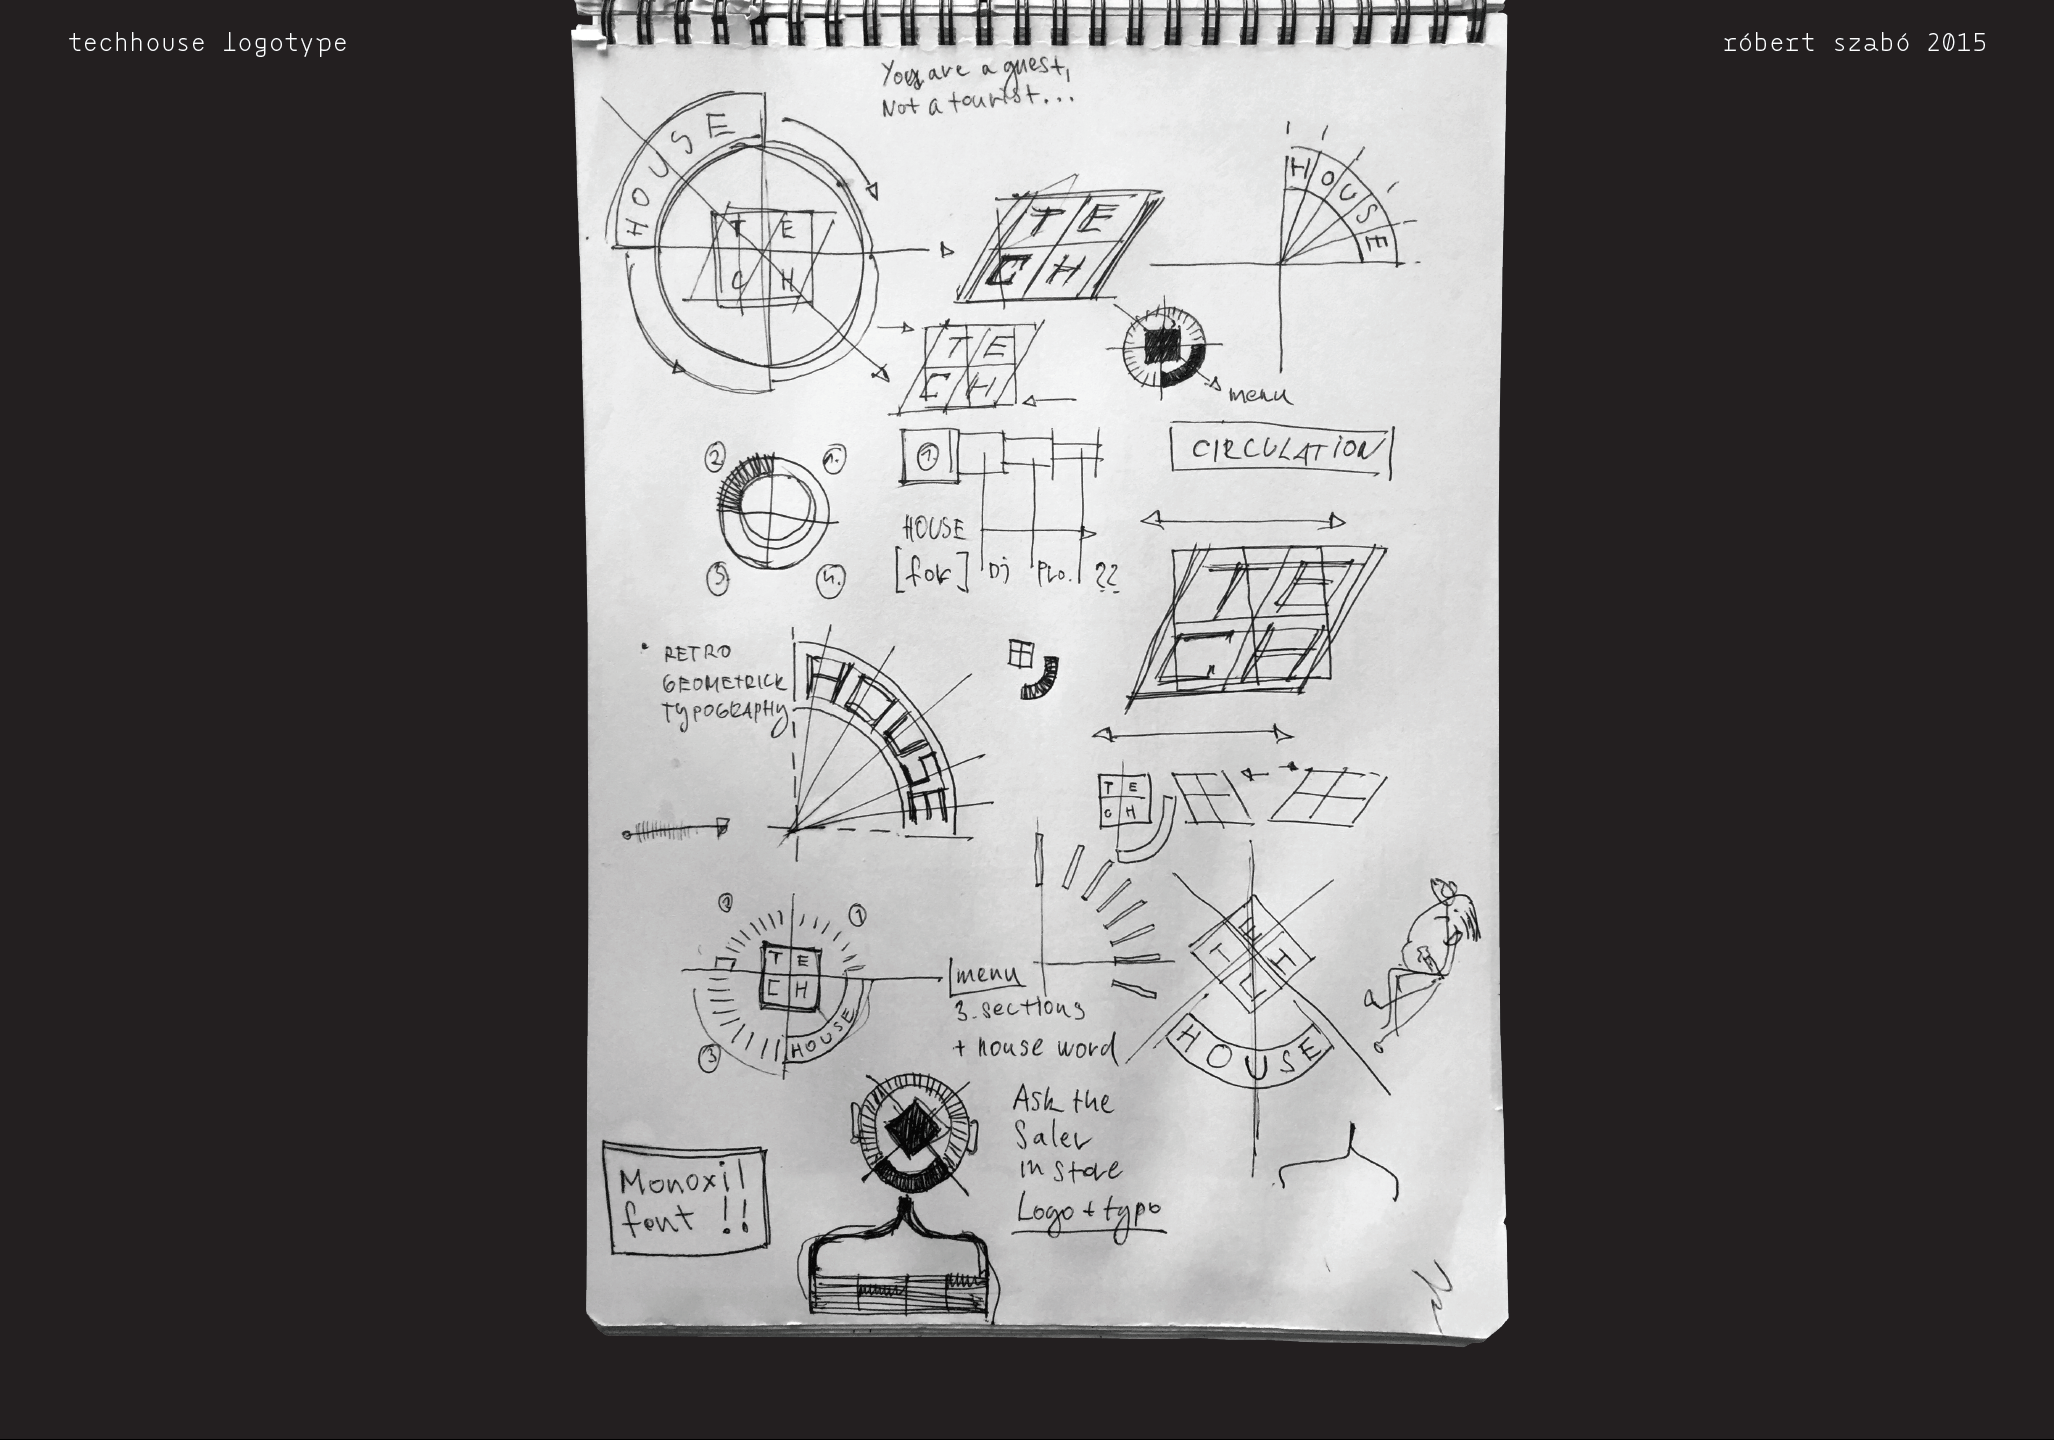 techhouse logotype
róbert szabó 2015
You are a guest,
Not a tourist...
HOUSE
T E
C H
T E
C H
HOUSE
T E
C H
menu
2. 1.
3. 4.
1
CIRCULATION
HOUSE
[for] Dj Pro. ??
T E
C H
• RETRO
GEOMETRICK
TYPOGRAPHY
HOUSE
T E
C H
2 1
T E
C H
HOUSE
3
menu
3. sections
+ house word
T E
C H
HOUSE
Ask the
Saler
in store
Logo + typo
Monoxil
font !!